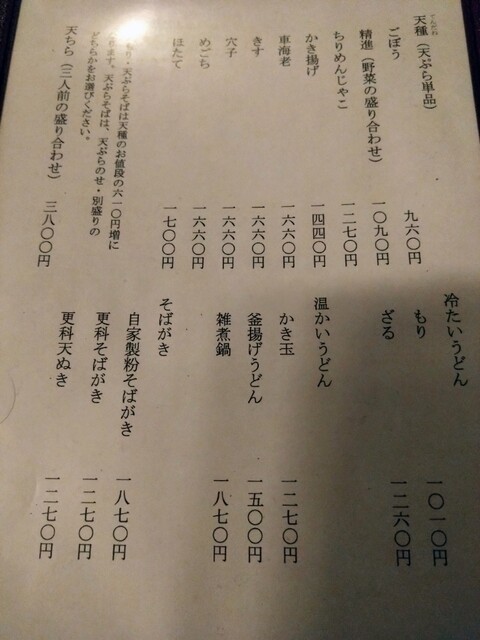 天種（天ぷら単品）
ごぼう 九六〇円
精進（野菜の盛り合わせ） 一〇九〇円
ちりめんじゃこ 一二七〇円
かき揚げ 一四四〇円
車海老 一六六〇円
きす 一六六〇円
穴子 一六六〇円
めごち 一六六〇円
ほたて 一七〇〇円
もり・天ぷらそばは天種のお値段の六一〇円増に
ります。天ぷらそばは、天ぷらのせ・別盛りの
どちらかをお選びください。
天ちら（三人前の盛り合わせ） 三八〇〇円
冷たいうどん
もり 一〇一〇円
ざる 一二六〇円
温かいうどん
かき玉 一二七〇円
釜揚げうどん 一五〇〇円
雑煮鍋 一八七〇円
そばがき
自家製粉そばがき 一八七〇円
更科そばがき 一二七〇円
更科天ぬき 一二七〇円